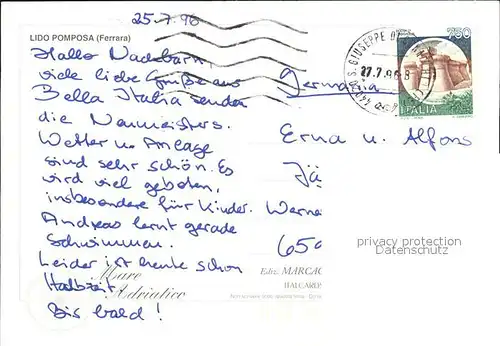 25.7.96
LIDO POMPOSA (Ferrara)
Hallo Nachbarn!
viele liebe Grüße aus
Bella Italia senden
die Neumeisters.
Wetter u. Anlage
sind sehr schön. Es
wird viel geboten,
insbesondere für Kinder.
Andreas lernt gerade
Schwimmen.
Leider ist heute schon
Halbzeit.
Bis bald!
Mare
Adriatico
Ediz. MARCAC
ITALCARD
S. GIUSEPPE
27.7.96-8
750
ITALIA
Germania
Erna u. Alfons
Jä
Werna
650
privacy protection
Datenschutz